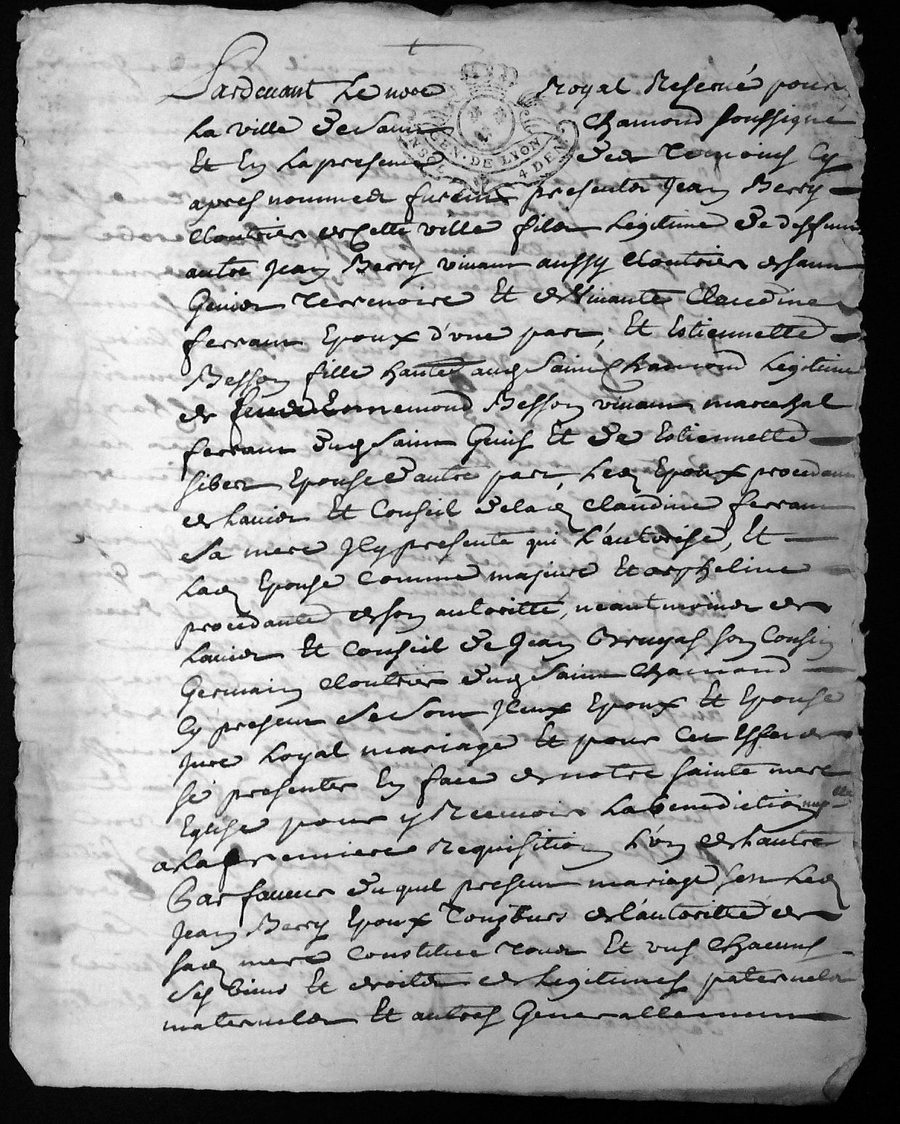 Pardevant Le nore Royal Reservé pour
GEN. DE LYON
4 DEN
La ville de Saint Chamond soussigné
Et En La presence des Temoins Cy
apres nommes furent presents Jean Berry
Cloutier de Cette ville fils Legitime de deffunt
autre Jean Berry vivant aussy Cloutier de Saint
Genis Terrenoire Et de vivante Claudine
ferrant Epoux d'vne part, Et Estiennette
Besson fille hante aud Saint Chamond Legitime
de Ennemond Besson vivant marechal
ferrant dud Saint Genis Et de Estiennette
Sibert Epouse d'autre part, Led Epoux procedant
de Lavis Et Conseil de lad Claudine ferrant
Sa mere Icy presente qui L'autorise, Et
Lad Epouse Comme majure Et orpheline
procedante de son autoritté, neantmoins de
Lavis Et Conseil de Jean son Cousin
Germain Cloutier dud Saint Chamond
Cy present Se Sont Iceux Epoux Et Epouse
Juré Loyal mariage Et pour Cet Effet de
se presenter En face de notre sainte mere
Eglise pour y Recevoir La benediction nup
elle
a La premiere Requisition L'un de Lautre
Par faveur duquel present mariage Led
Jean Berry Epoux Toujours de l'autoritté de
sad mere Constitue Tous Et vns Chacuns
Ses biens Et droits de Legitimes paternels
maternels Et autres Generallement